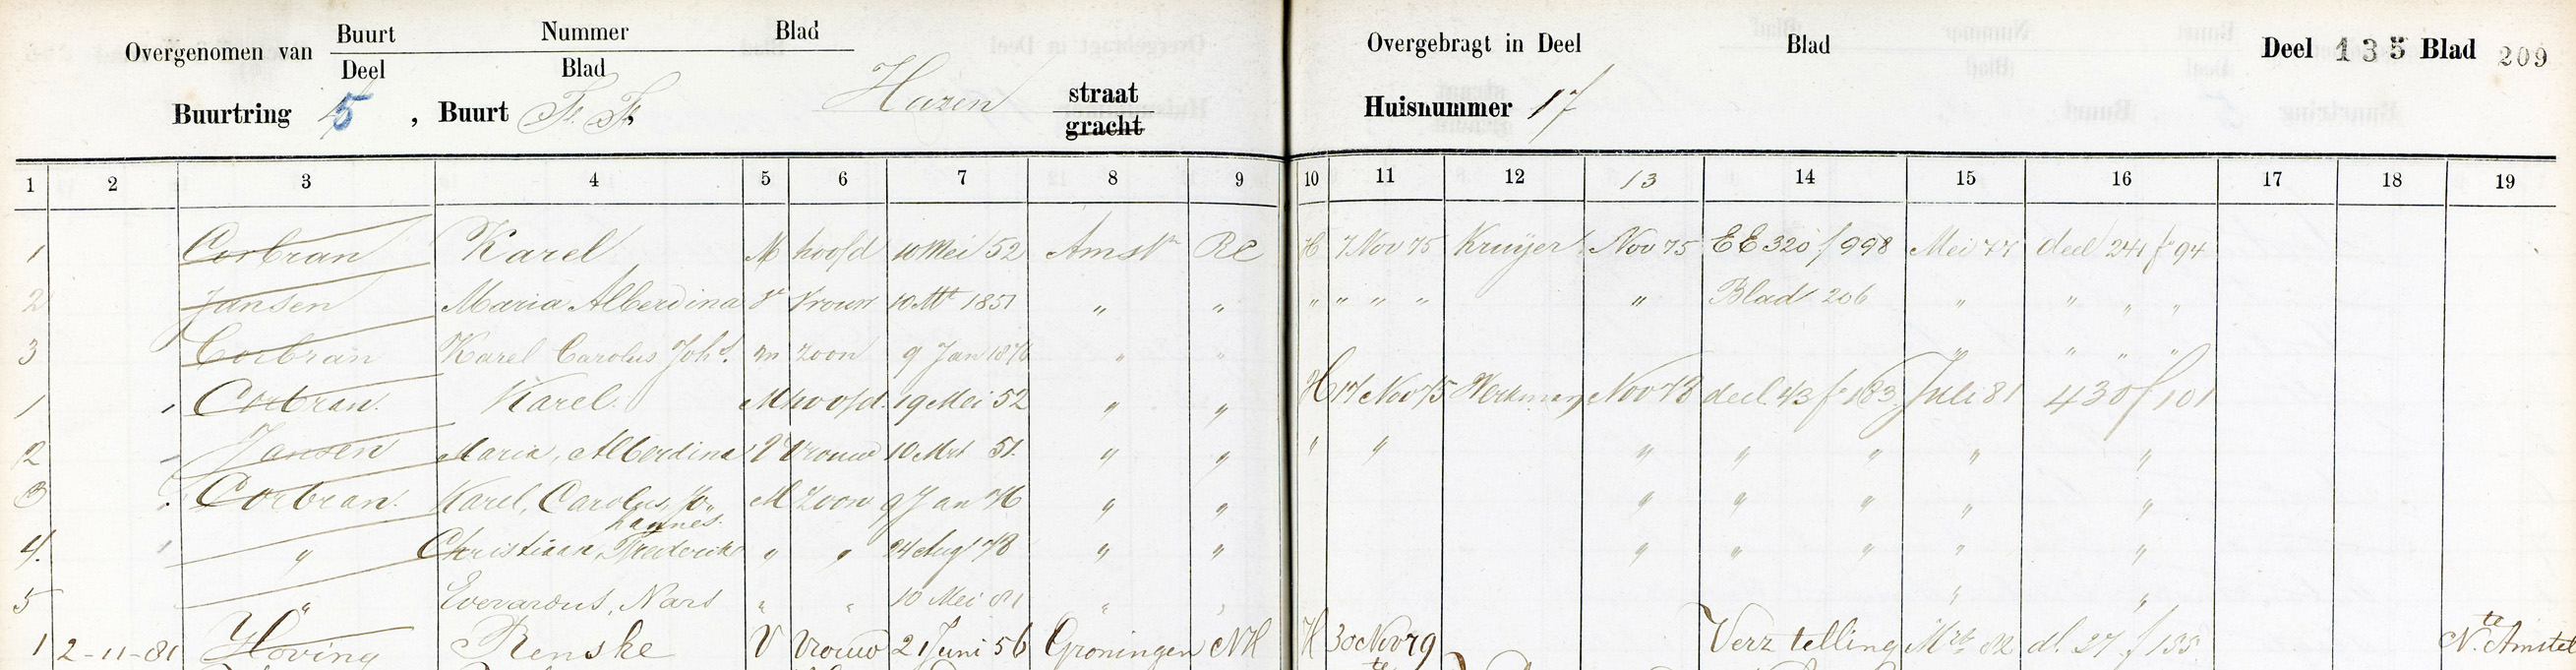 Overgenomen van Buurt Nummer Blad
Deel Blad
Buurtring 5, Buurt F. F. Hazen straat
gracht
Overgebragt in Deel Blad Deel 135 Blad 209
Huisnummer 17
1 2 3 4 5 6 7 8 9 10 11 12 13 14 15 16 17 18 19
1 Corbran Karel M hoofd 10 Mei 52 Amstm RC H 7 Nov 75 Kruijer Nov 75 EE 320 f 998 Mei 77 deel 241 fo 94
2 Jansen Maria Alberdina Vr Vrouw 10 Mt 1851 " " " " " " " Blad 206 " " " "
3 Corbran Karel Carolus Johs. m zoon 9 Jan 1876 " " " " " "
1 Corbran. Karel. M hoofd. 19 Mei 52 " " H 17 Nov 75 Werkman Nov 78 deel 43 fo 183 Juli 81 430 f 101
2 Jansen Maria, Alberdina V Vrouw 10 Mrt 51. " " " " " " " " "
3 Corbran. Karel, Carolus, Jo-
hannes. M Zoon 9 Jan 76 " " " " " " "
4. " Christiaan, Frederik " " 24 Aug 78 " " " " " " "
5 " Everardus, " " 10 Mei 81 " " " "
1 2-11-81 Hoving Renske V Vrouw 2 Juni 56 Groningen NH H 30 Nov 79 Verz telling Mrt 82 dl. 27 f 135 Nte Amstel